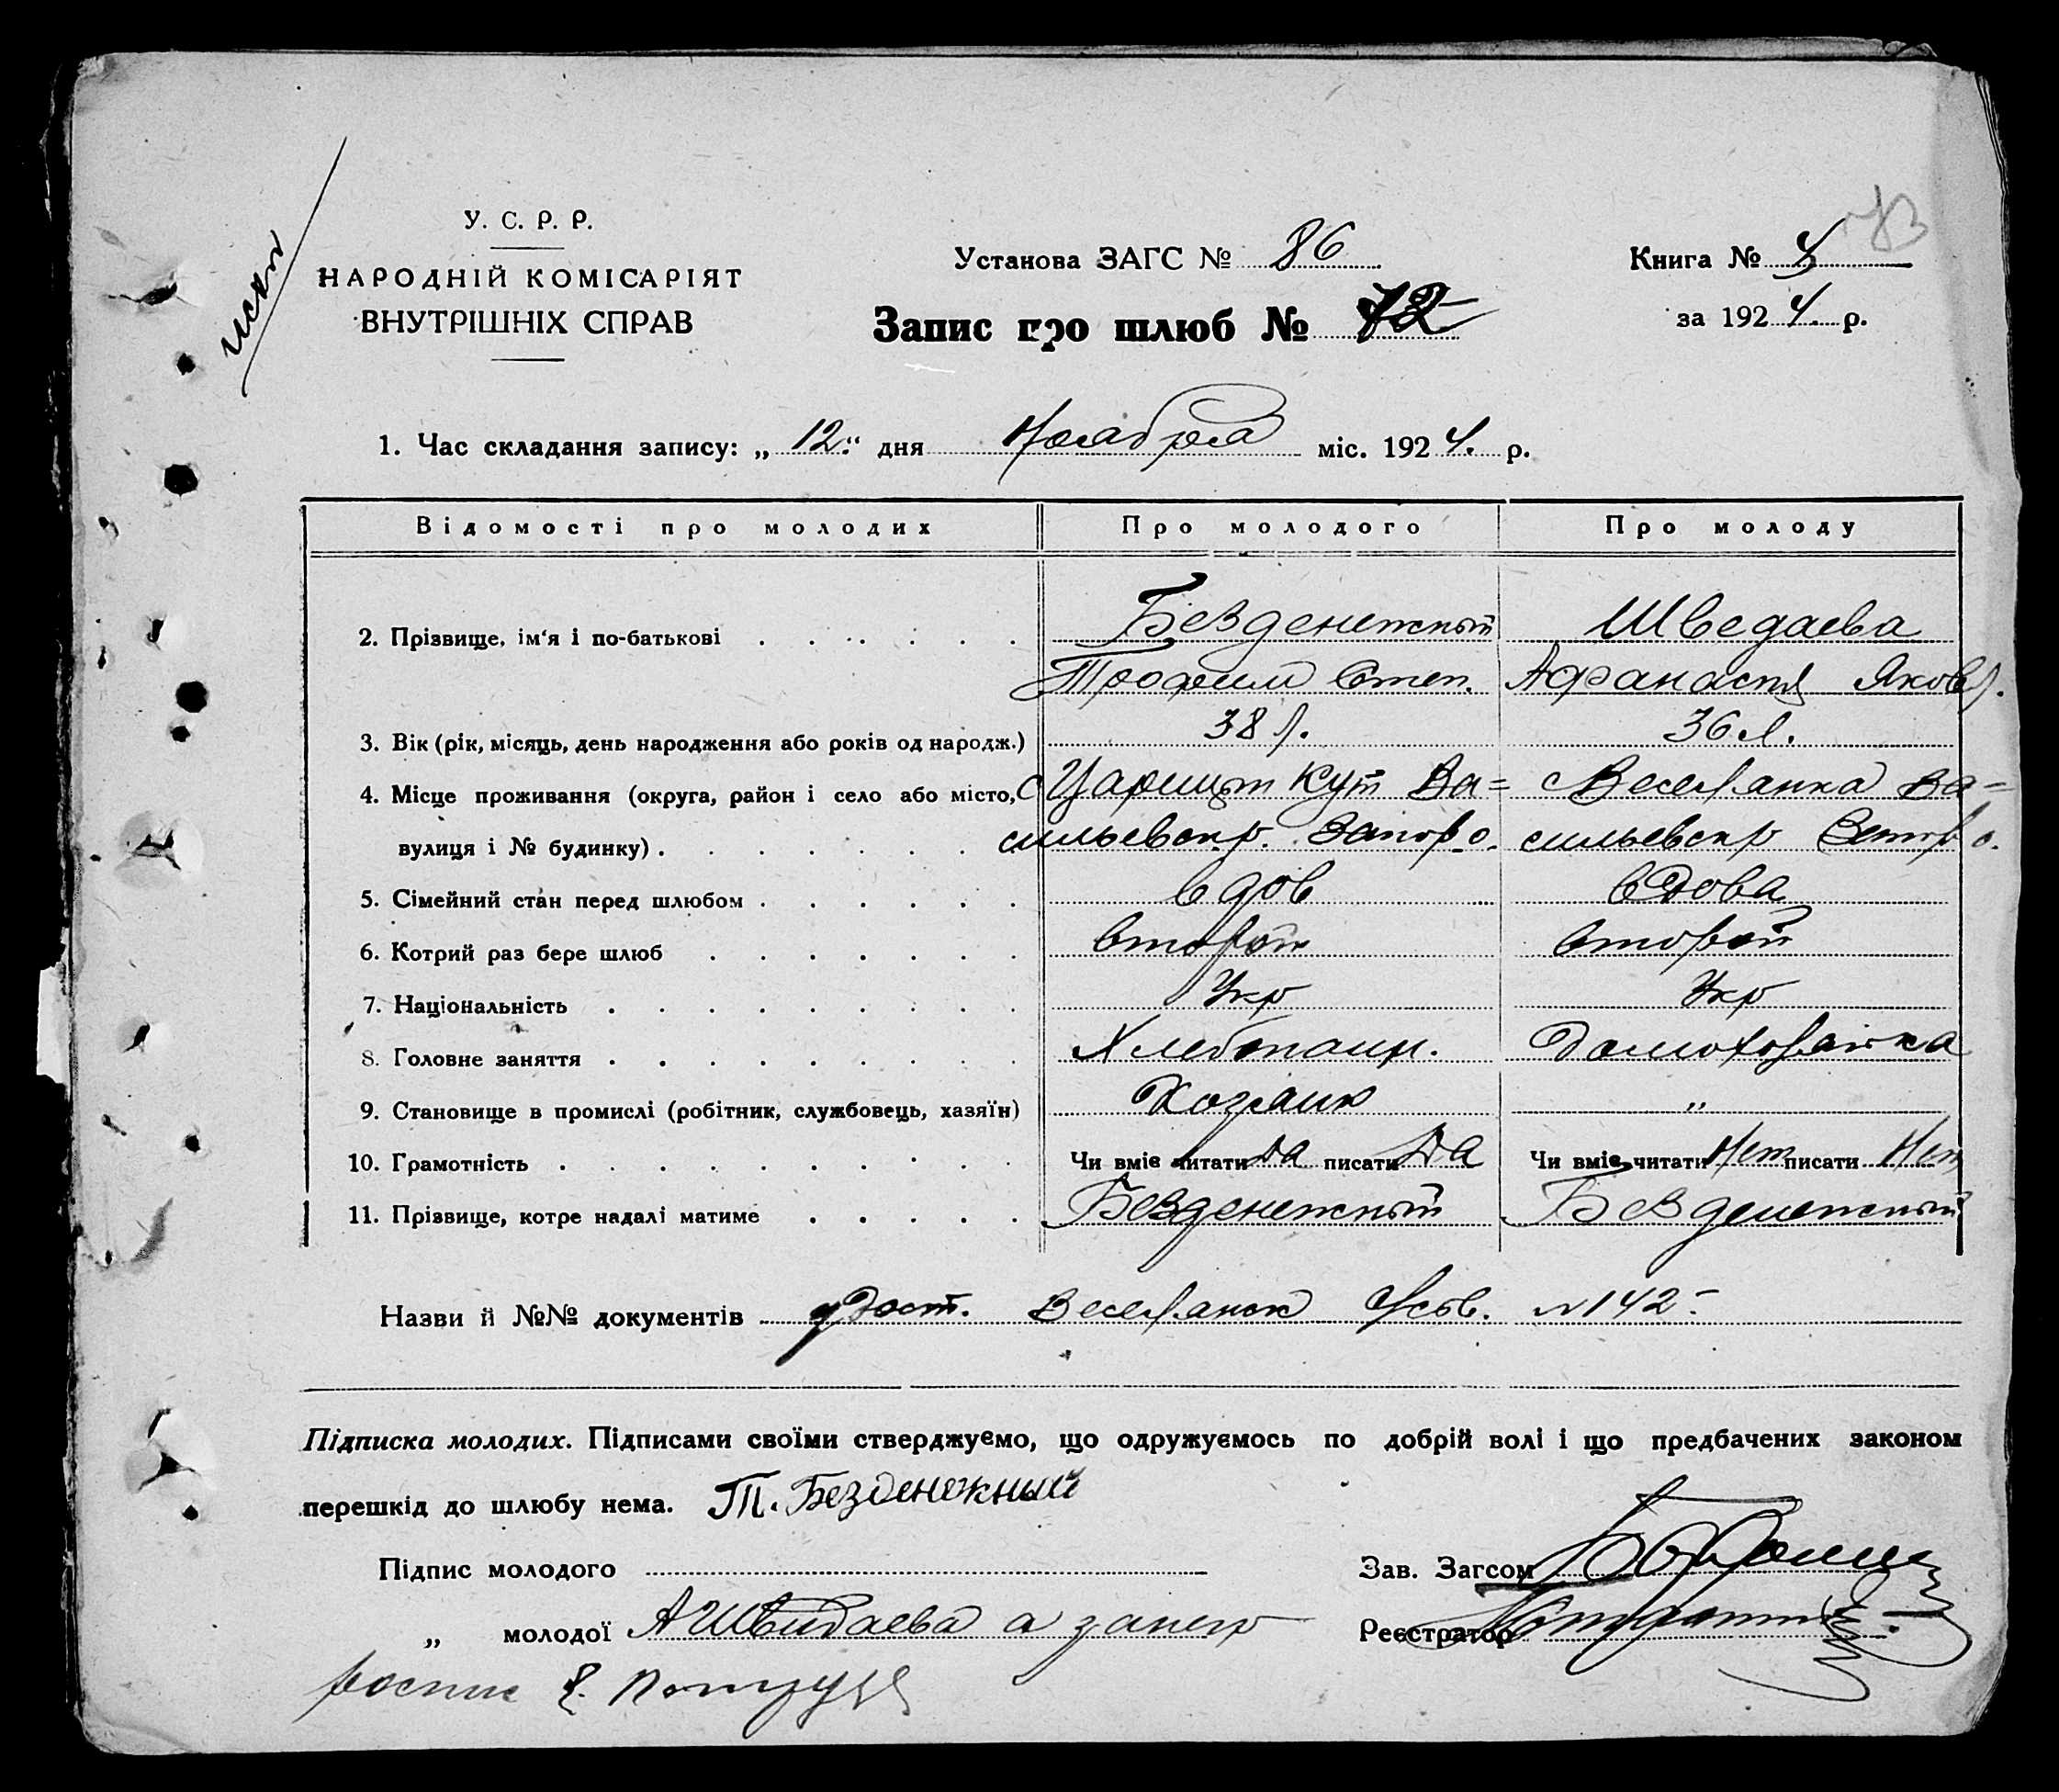 У. С. Р. Р.
НАРОДНІЙ КОМІСАРІЯТ
ВНУТРІШНІХ СПРАВ
Установа ЗАГС № 86
Запис про шлюб № 72
Книга № 4
за 1924. р.
1. Час складання запису: „12“ дня Ноября міс. 1924. р.
Відомості про молодих Про молодого Про молоду
2. Прізвище, ім'я і по-батькові Безденежный Шведаева
Трофим Степ. Афанасия Яковл.
3. Вік (рік, місяць, день народження або років од народж.) 38 л. 36 л.
4. Місце проживання (округа, район і село або місто, с Царицын Кут Ва= с Веселянка Ва=
вулиця і № будинку) сильевск р. Запор о. сильевск р Запор о.
5. Сімейний стан перед шлюбом вдов вдова
6. Котрий раз бере шлюб второй второй
7. Національність Укр Укр
8. Головне заняття Хлебопашн. Домохозяйка
9. Становище в промислі (робітник, службовець, хазяїн) Хозяин „
10. Грамотність Чи вміє читати Да писати Да Чи вміє читати Нет писати Нет
11. Прізвище, котре надалі матиме Безденежный Безденежный
Назви й №№ документів удост. Веселянск с/сов. № 142
Підписка молодих. Підписами своїми стверджуємо, що одружуємось по добрій волі і що предбачених законом
перешкід до шлюбу нема. Т. Безденежный
Підпис молодого
Зав. Загсом
„ молодої А Шведаева а за нею
Реєстратор
роспис